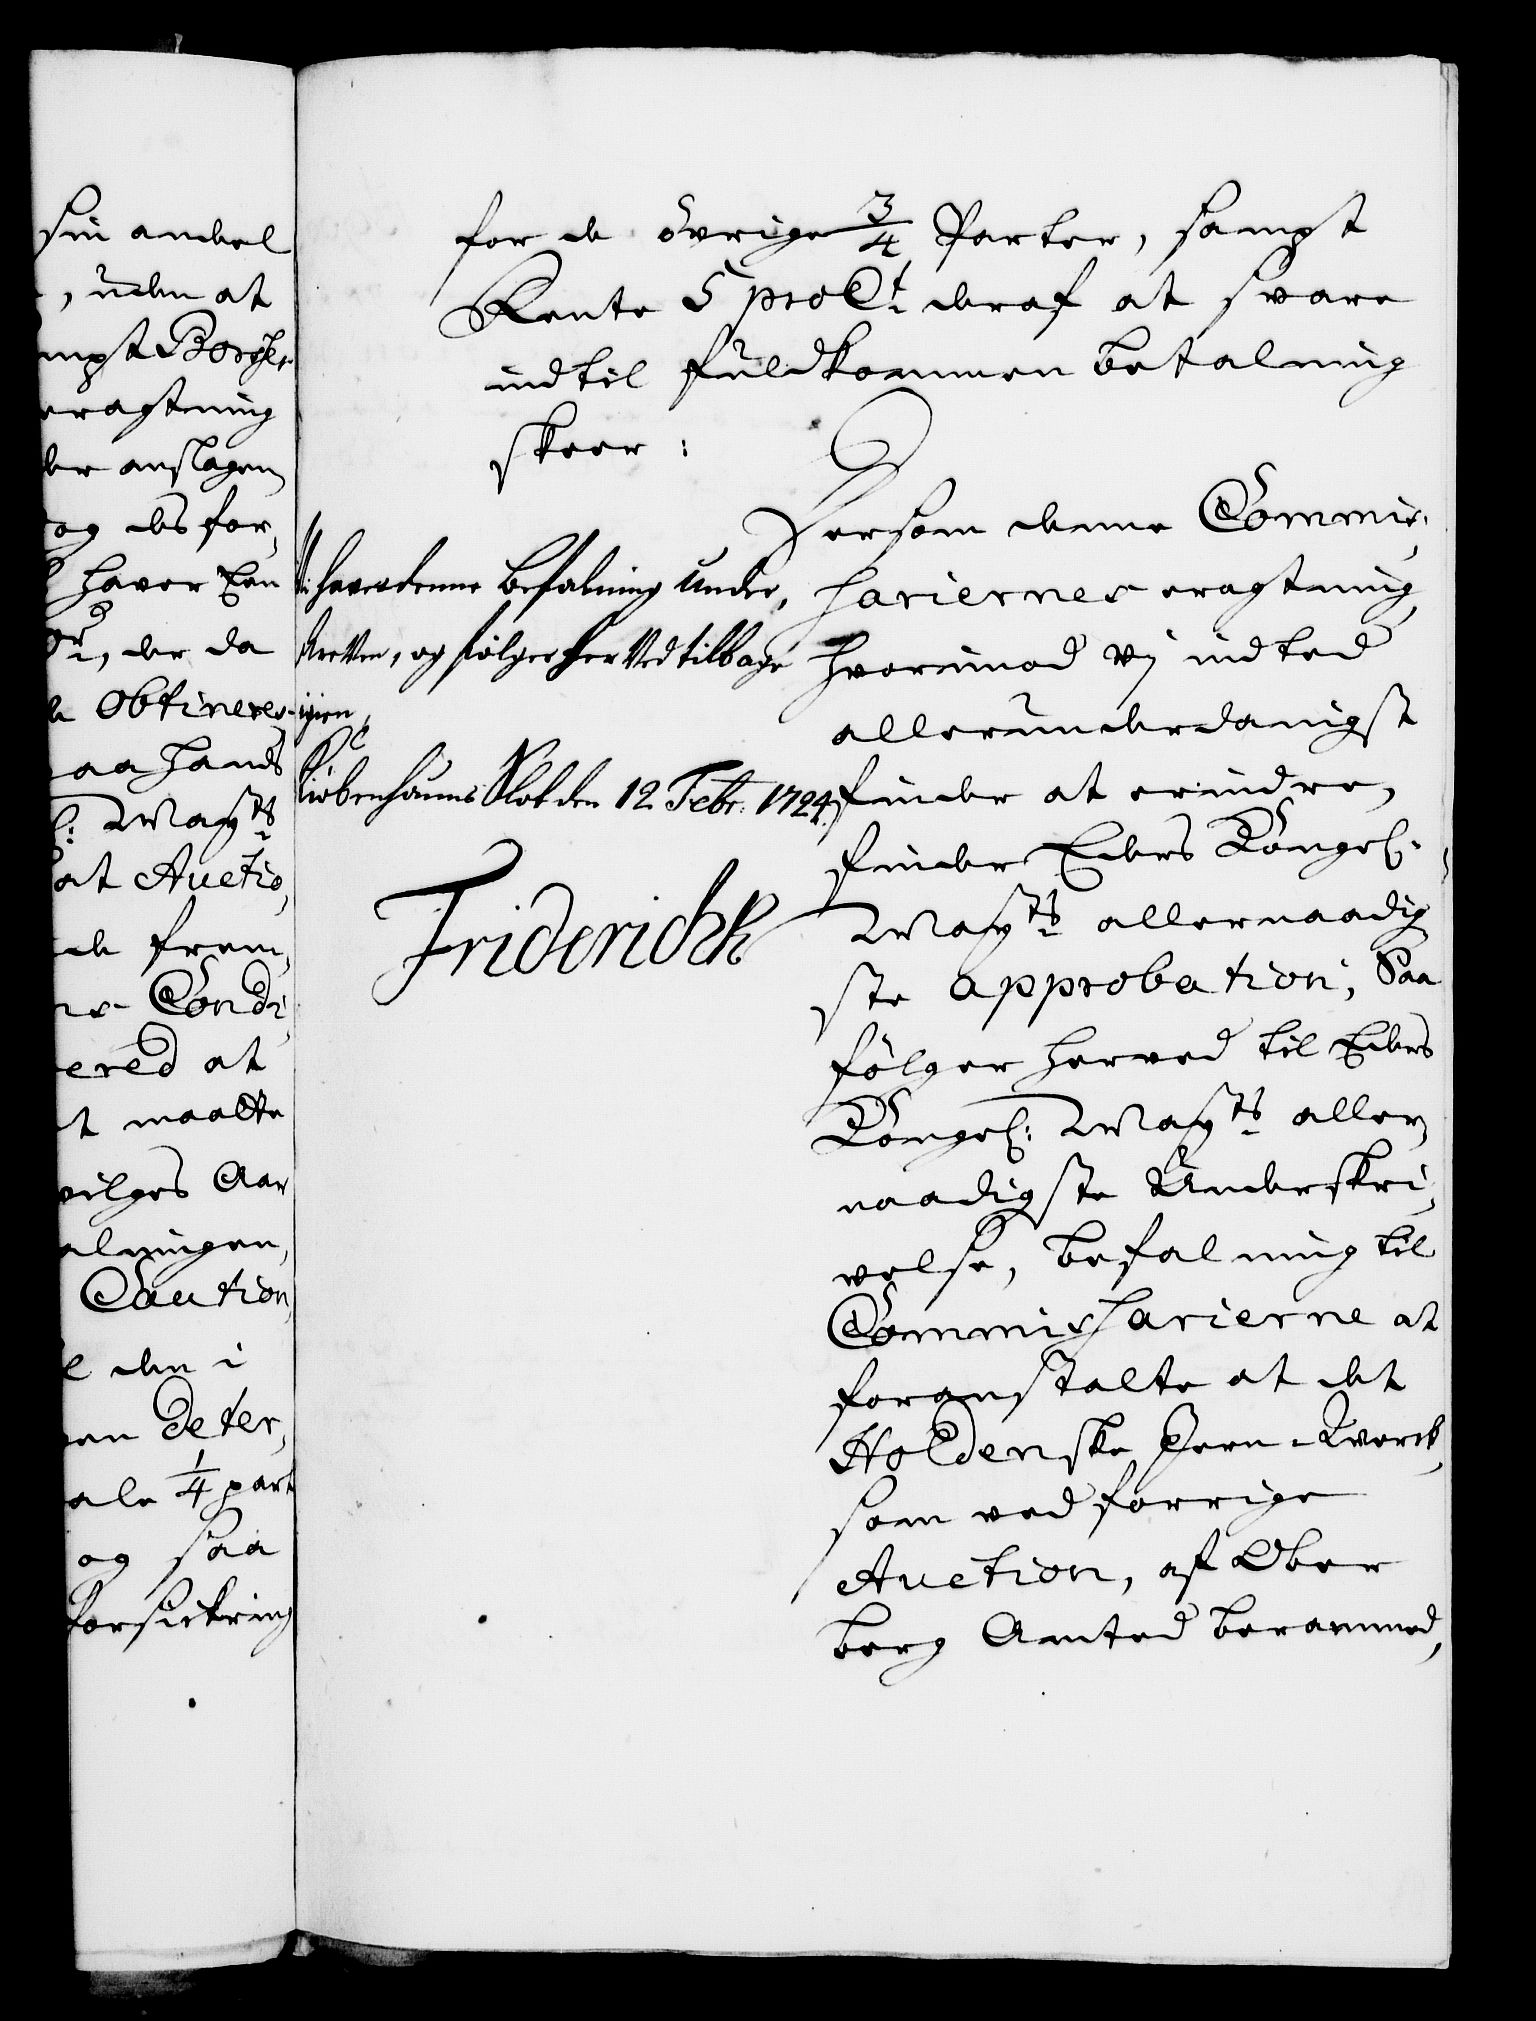 sin andel
, uden at
mpt Borger
eragtning
der anslagen
og des for,
haver Een
der da
Obtineres
aa hands
Mayts
at Auctio,
de frem,
Condi,
ered at
t maatte
vilges Aar
alningen,
Caution,
den i
en deter,
ale 1/4 part
og saa
forsickring
for de övrige 3/4 Parter, sampt
Rente 5 pro Ct: deraf at svare
indtil fuldkommen betalning
skeer:
Dersom denne Commis,
sariernes eragtning,
hvorimod vj indted
allerunderdanigst
finder at erindre,
finder Eders Kongel:
Mayts allernaadig
ste approbation, Saa
fölger herved til Eders
Kongel: Mayts aller,
naadigste Underskri,
velse, befalning til
Commissarierne at
foranstalte at det
Holdenske Jern-Werck,
som ved forrige
Auction, af Ober
berg Amted berammed,
Vi haver denne befalning under,
skreven, og følger her ved tilbage
igien,
Kiøbenhavns Slot den 12 Febr: 1724.
Friderich R